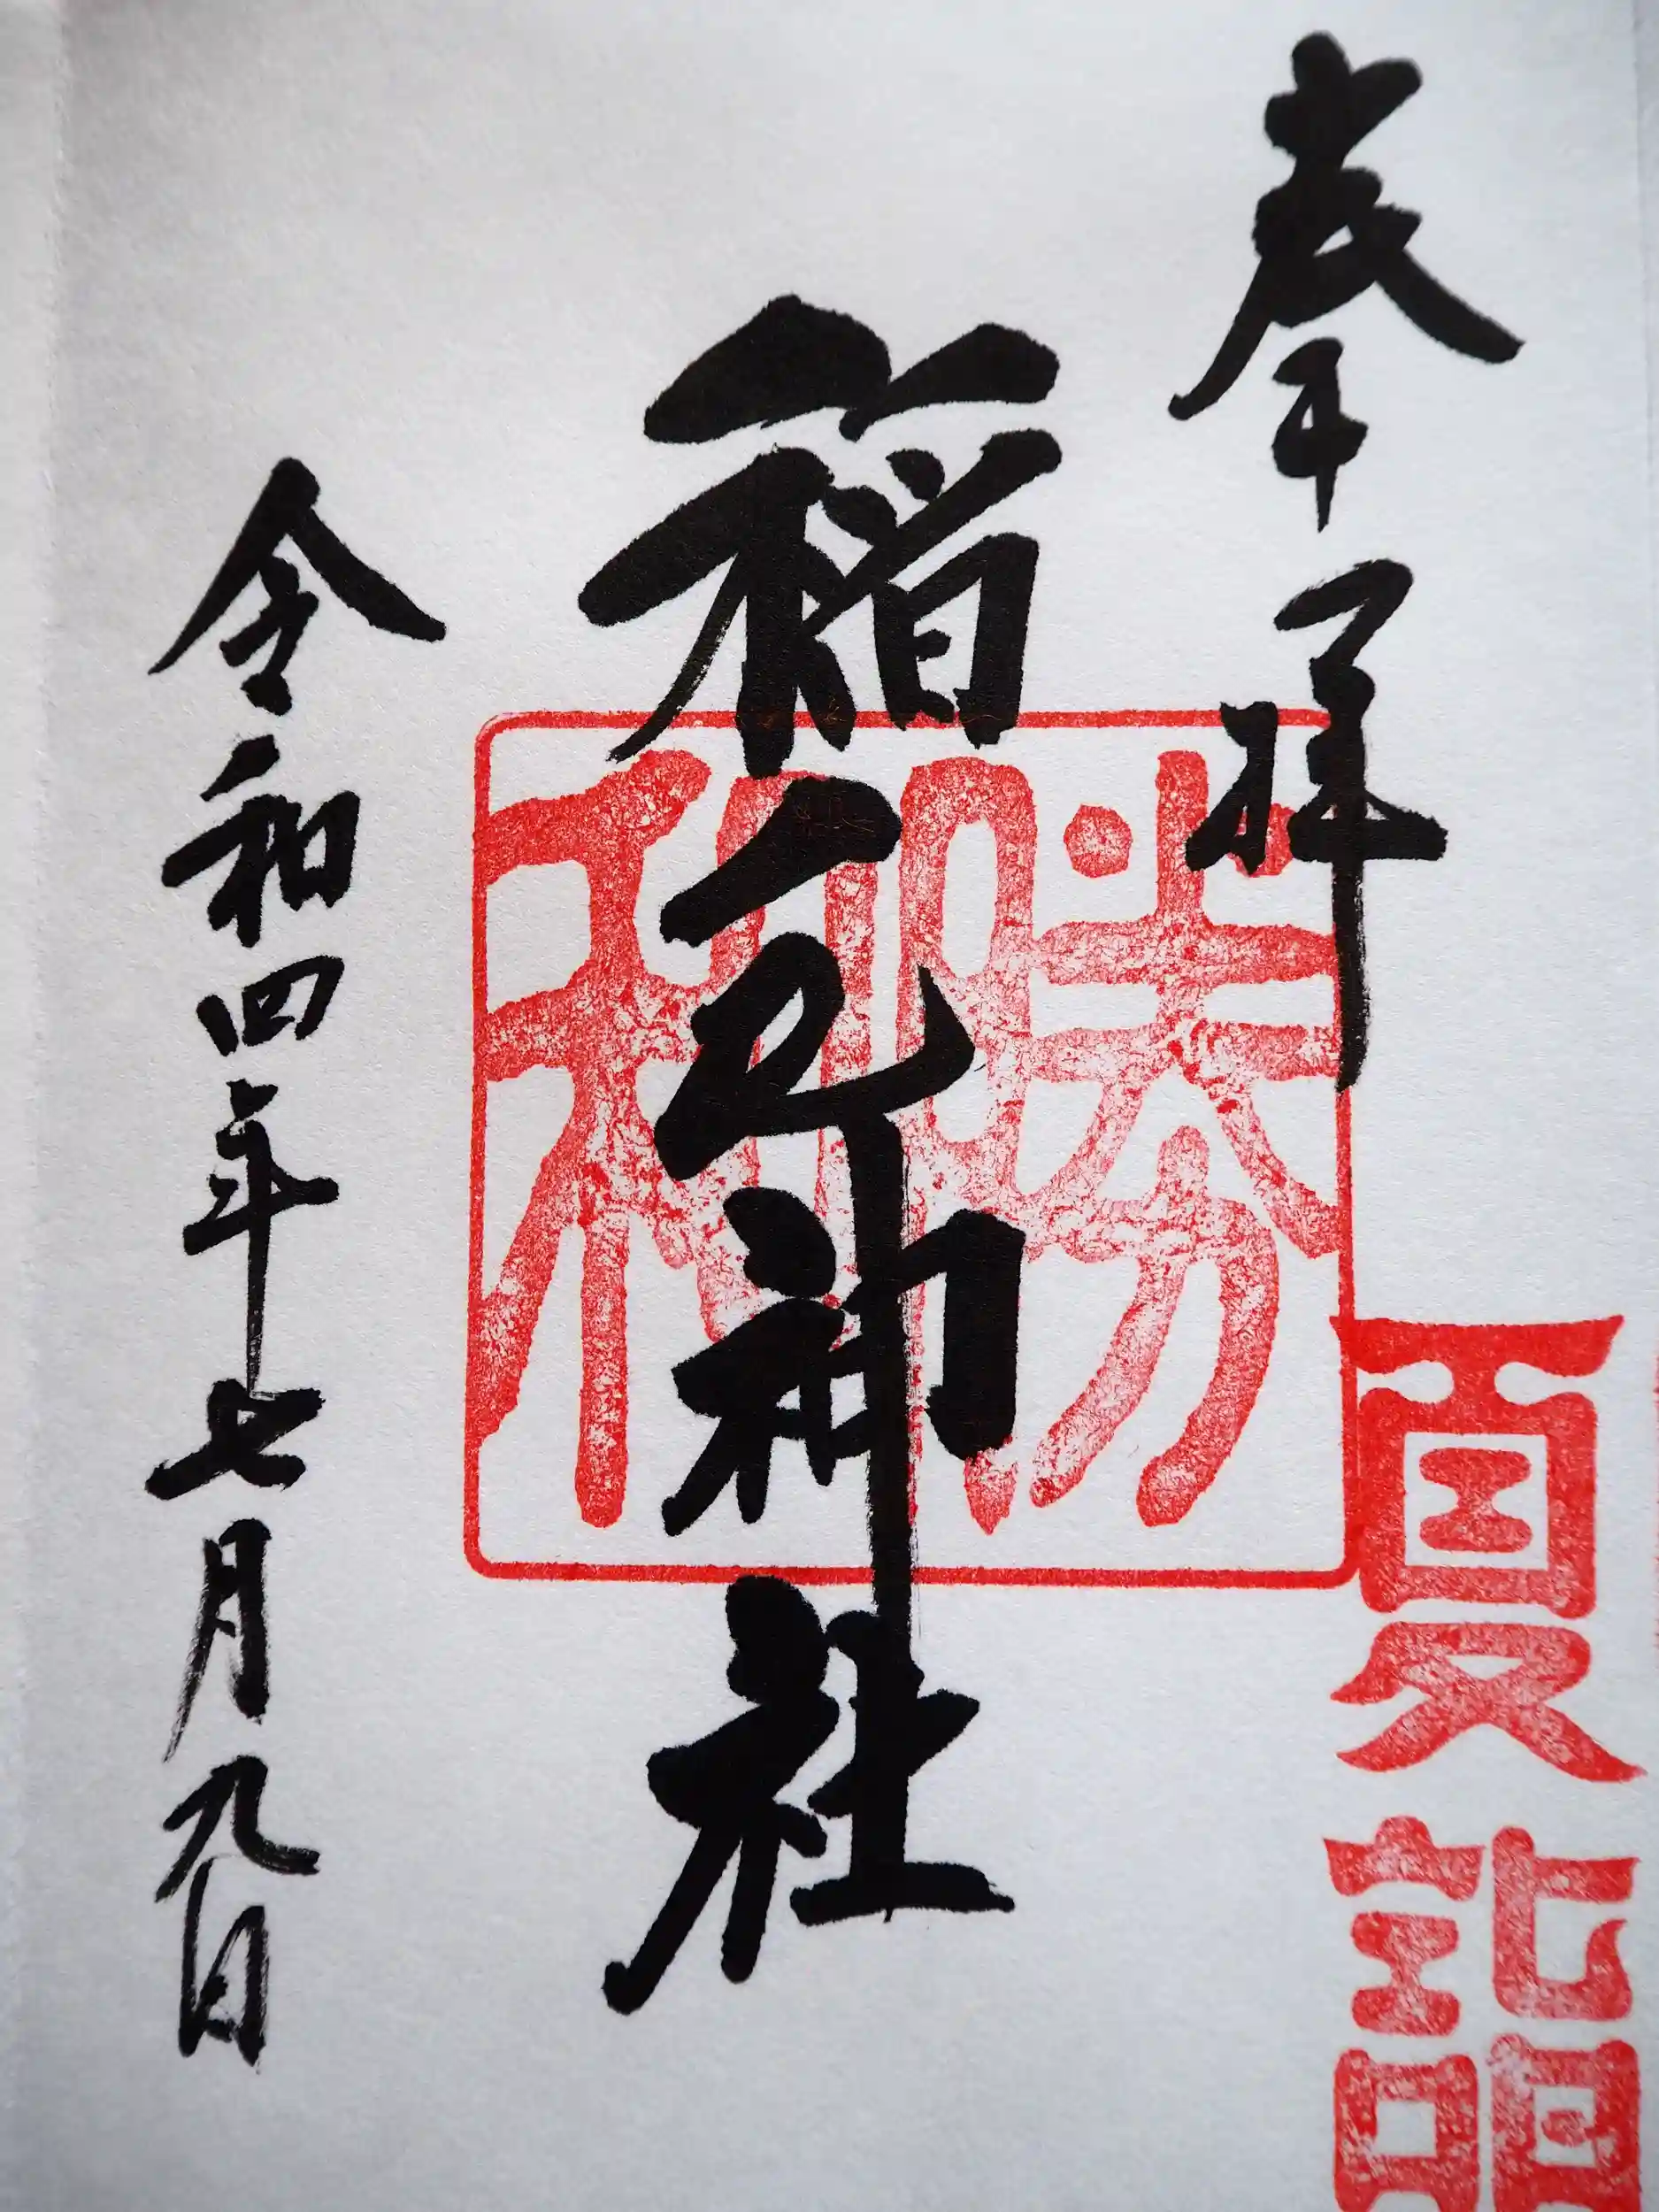 奉拝
稲毛神社
令和四年七月九日
勝利
夏詣